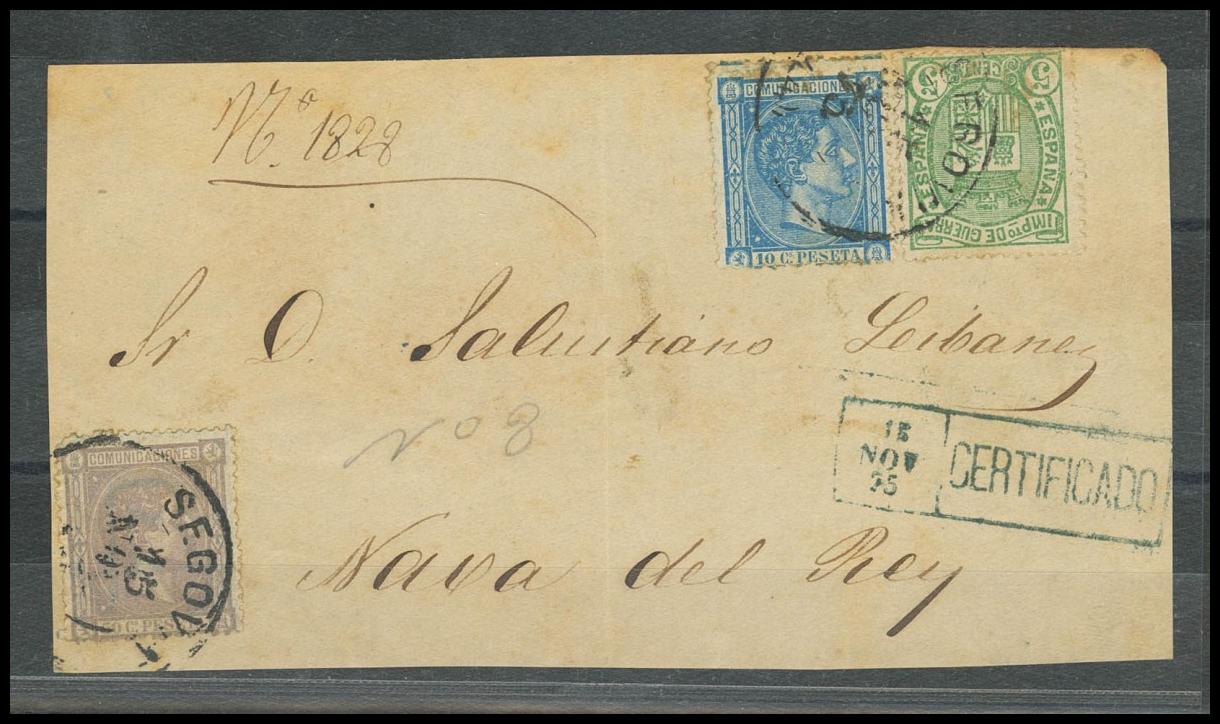 Nº 1828
COMUNICACIONES
10 Cs PESETA
5 CENTs 5
ESPAÑA ESPAÑA
IMPTO DE GUERRA
SEGOVIA
Sr D. Salustiano Leibanez
Nº 8
15
NOV
75
CERTIFICADO
COMUNICACIONES
50 C. PESETA
SEGOV
15
Nava del Rey